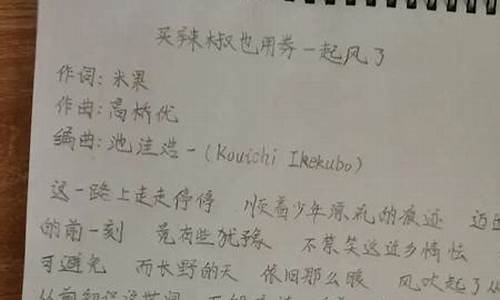 买辣椒也用券一起风了
作词:米果
作曲:高桥优
编曲:池洼浩一(Kouichi Ikekubo)
这一路上走走停停 顺着少年漂流的痕迹 迈出
的前一刻 竟有些犹豫 不禁笑这近乡情怯
可避免 而长野的天 依旧那么暖 风吹起了从
从前初识这世间